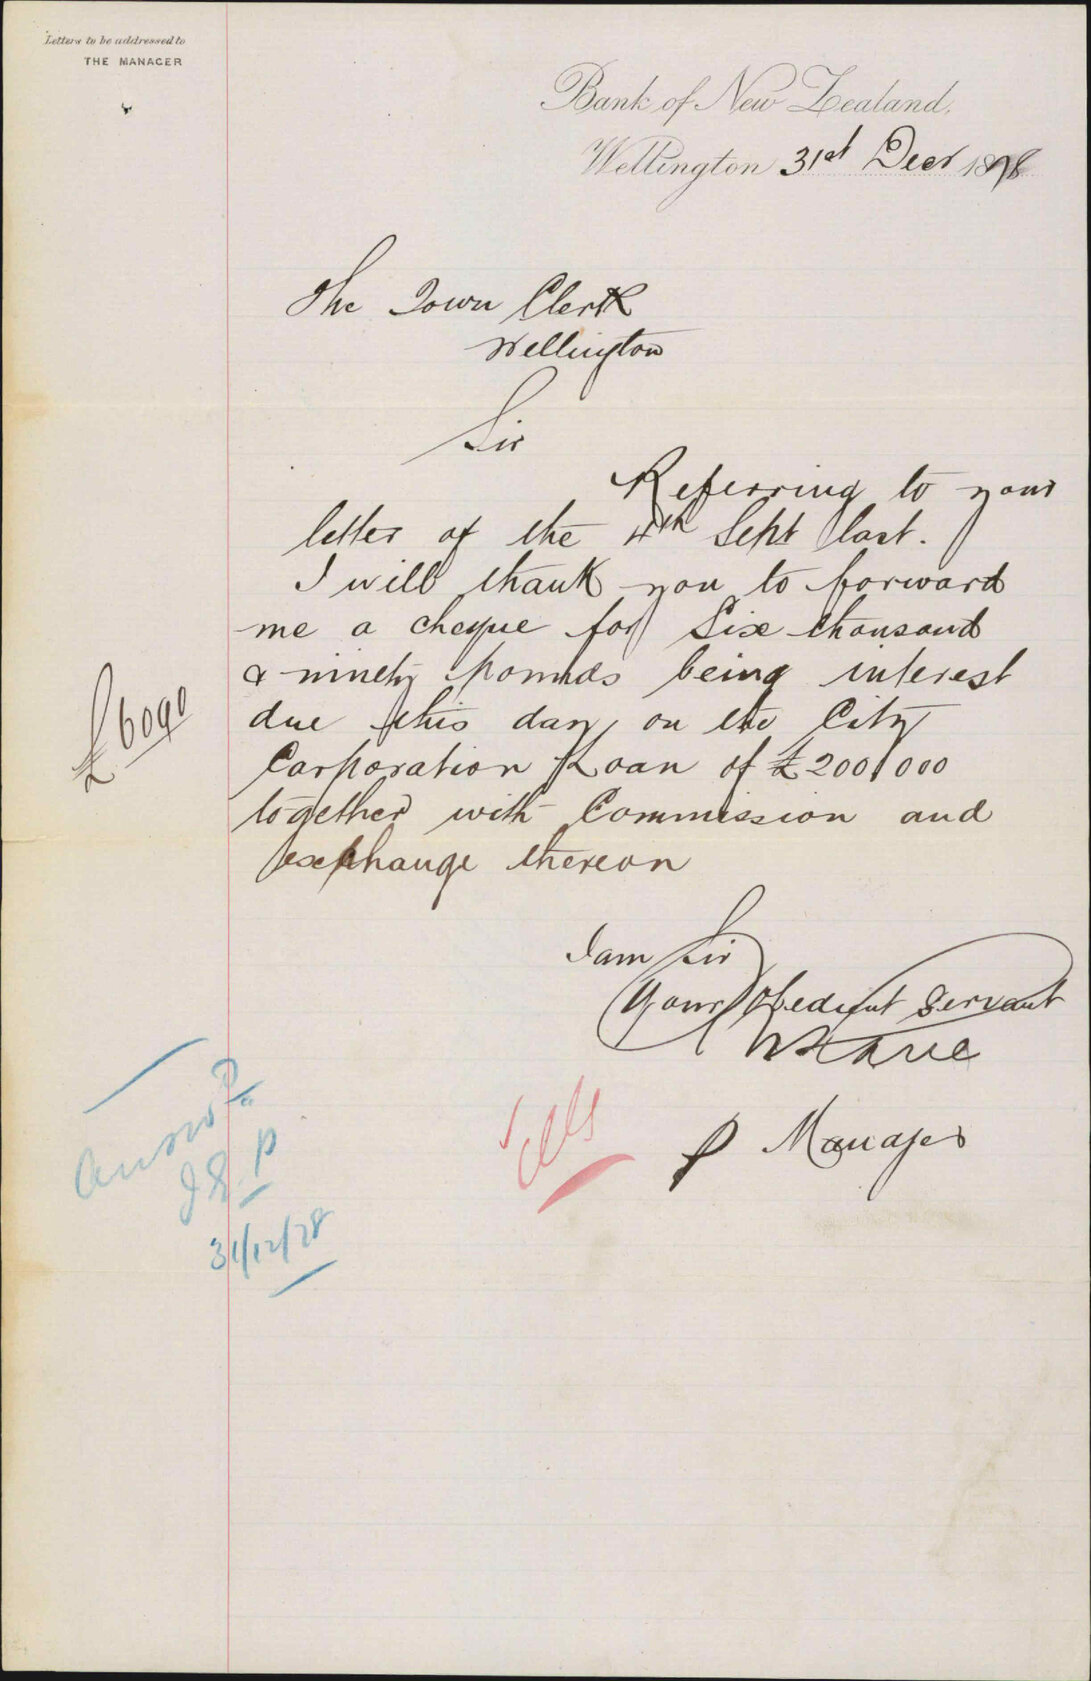 Letters to be addressed to
THE MANAGER
Bank of New Zealand,
Wellington 31st Decr 1878
The Town Clerk
Wellington
Sir
Referring to your
letter of the 4th Sept last.
I will thank you to forward
me a cheque for Six thousand
& ninety pounds being interest
due this day on the City
Corporation Loan of £200,000
together with Commission and
exchange thereon
£6090
I am Sir
Your Obedient Servant
p Manager
Answd
31/12/78